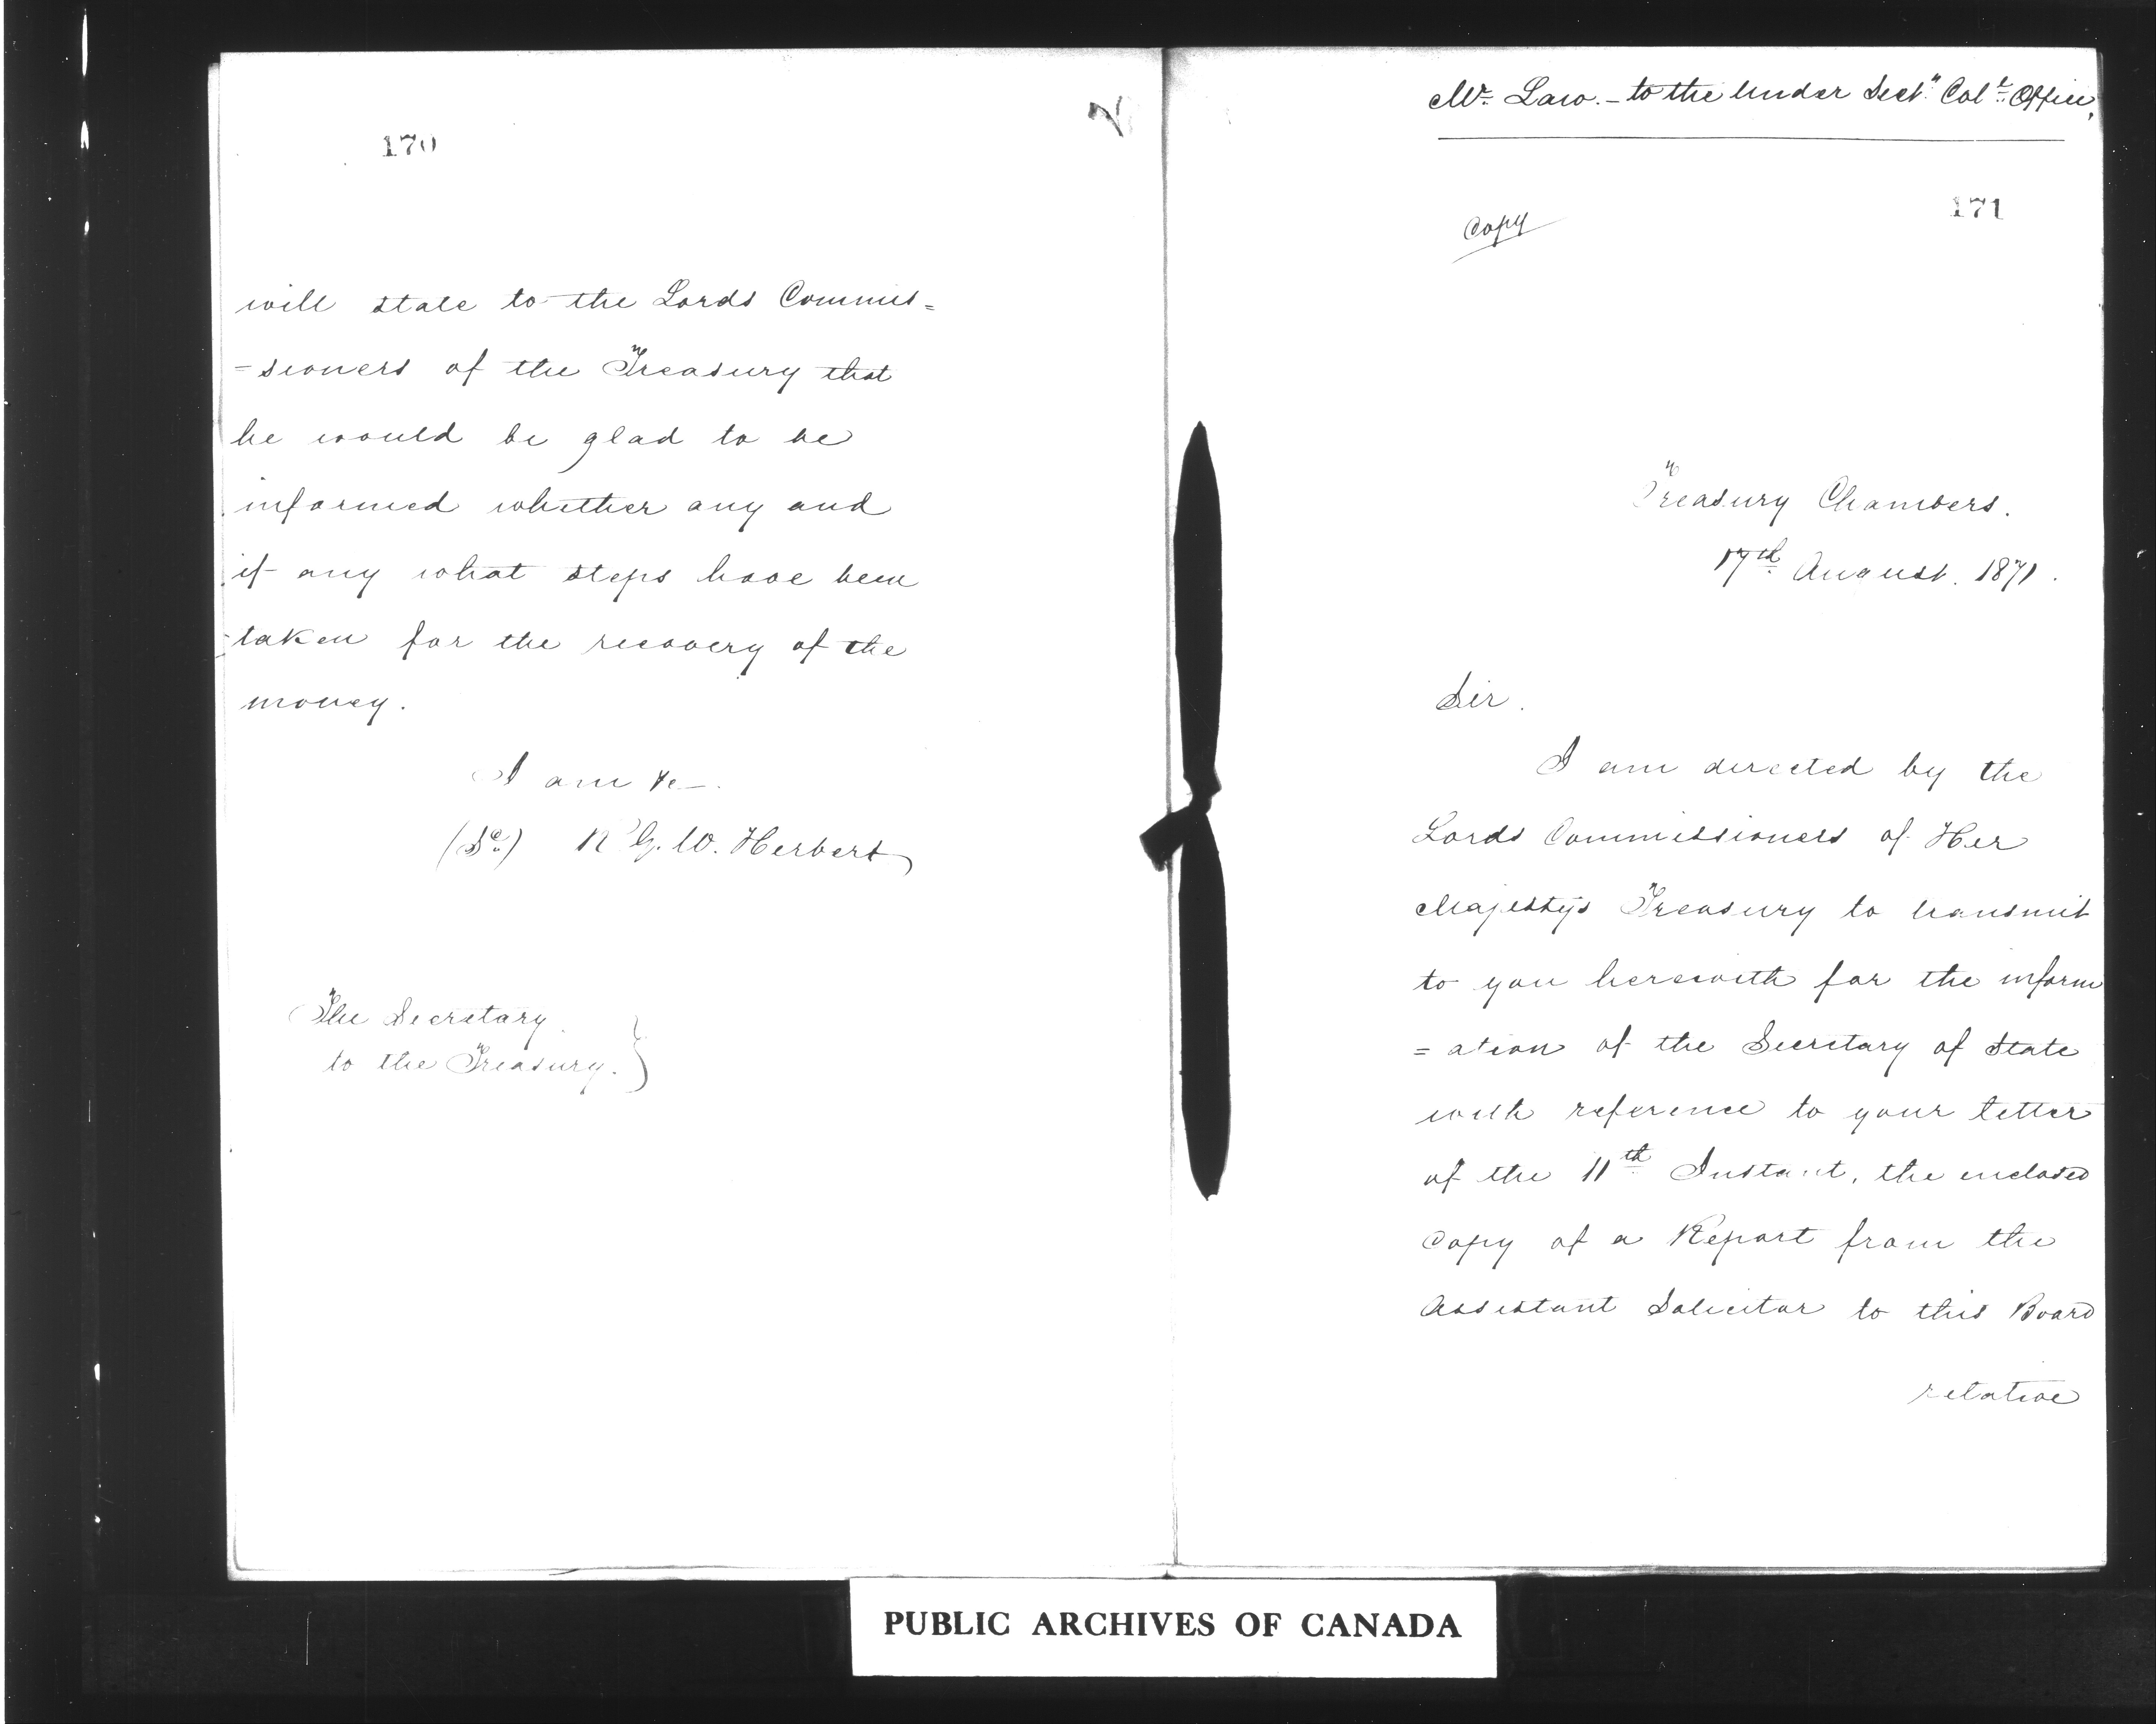 170
will state to the Lords Commis=
=sioners of the Treasury that
he would be glad to be
informed whether any and
if any what steps have been
taken for the recovery of the
money.
I am &c—.
(Sd.) R. G. W. Herbert
The Secretary
to the Treasury. }
Mr. Law. – to the Under Secy. Coll. Office,
171
Copy
Treasury Chambers.
17th August. 1871.
Sir.
I am directed by the
Lords Commissioners of Her
Majesty's Treasury to transmit
to you herewith for the inform
=ation of the Secretary of State
with reference to your letter
of the 11th Instant, the enclosed
copy of a Report from the
Assistant Solicitor to this Board
relative
PUBLIC ARCHIVES OF CANADA